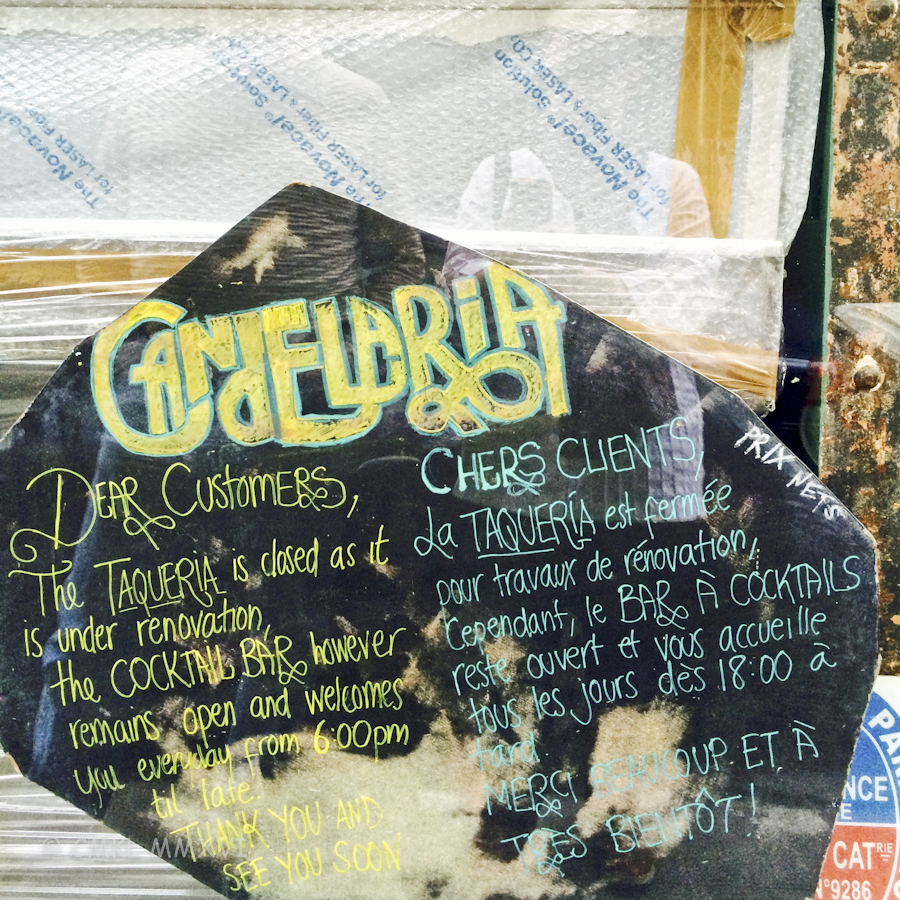 The Novacel
for LASER Fiber
The Novacel Solution
for LASER Fiber & LASER CO
The Novacel Solution
for LASER Fiber & LASER CO.
CANDELARIA
DEAR CUSTOMERS,
The TAQUERIA is closed as it
is under renovation,
the COCKTAIL BAR however
remains open and welcomes
you everyday from 6:00pm
til late.
THANK YOU AND
SEE YOU SOON
CHERS CLIENTS,
La TAQUERÍA est fermée
pour travaux de rénovation,
Cependant, le BAR À COCKTAILS
reste ouvert et vous accueille
tous les jours dès 18:00 à
tard.
MERCI BEAUCOUP ET À
TRÈS BIENTÔT!
PRIX NETS
NCE
E
CATRIE
N°9286